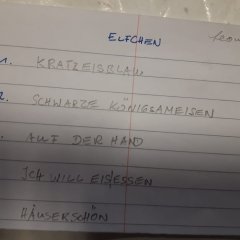 ELFCHEN
1. KRATZEISBLAU
2. SCHWARZE KÖNIGSAMEISEN
. AUF DER HAND
ICH WILL EIS/ESSEN
HÄUSERSCHÖN